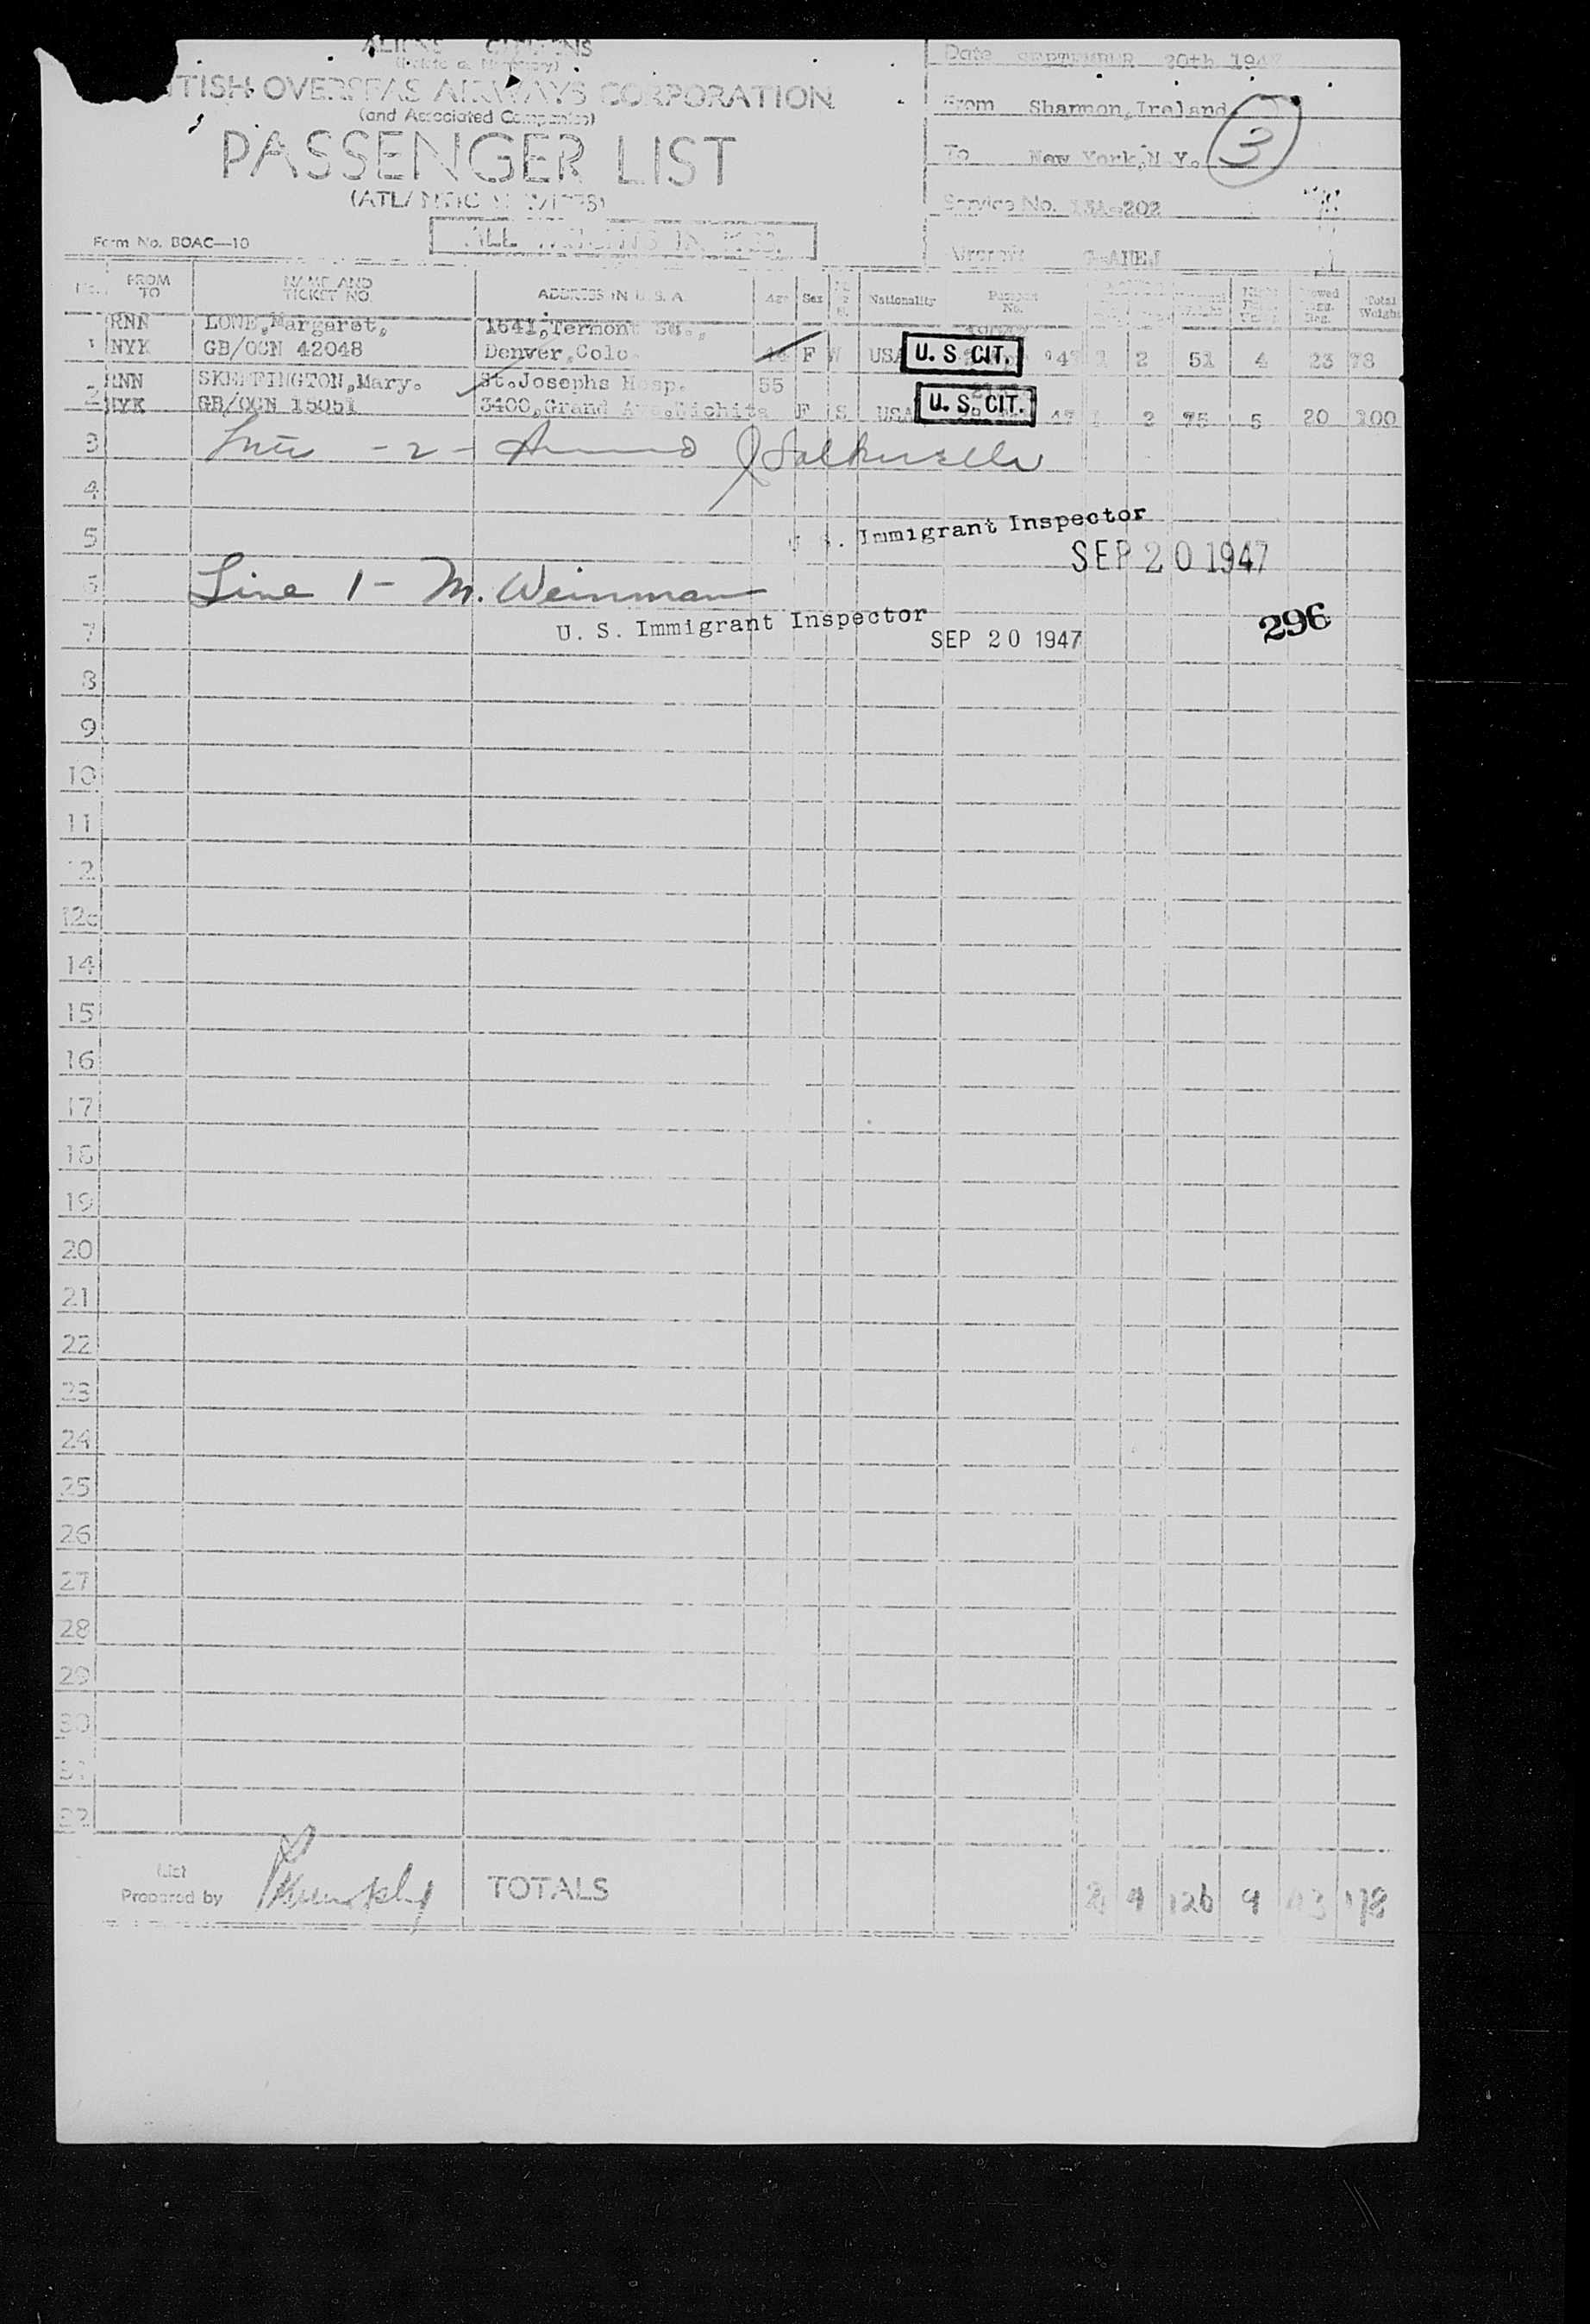 ALIENS CITIZENS
TISH OVERSEAS AIRWAYS CORPORATION
(and Associated Companies)
PASSENGER LIST
Form No. BOAC—10
Date SEPTEMBER 20th 194
From Shannon, Ireland
To New York, N.Y.
3
Service No.
Aircraft
FROM TO NAME AND TICKET NO. ADDRESS IN U. S. A. Age Sex Nationality Passport No. Total Weight
RNN LOWE, Margaret, 1641, Termont St.,
1 NYK GB/OCN 42048 Denver, Colo F W USA U. S. CIT. 2 51 4 23 78
RNN SKEFFINGTON, Mary. St. Josephs Hosp. 55
2 NYK GB/OCN 15051 3400, Grand Ave, Wichita F S USA U. S. CIT. 47 2 75 5 20 100
3 - 2 -
4
U. S. Immigrant Inspector
5
SEP 20 1947
6 Line 1 - M. Weinman
7 U. S. Immigrant Inspector SEP 20 1947 296
8
9
10
11
12
12c
14
15
16
17
18
19
20
21
22
23
24
25
26
27
28
29
30
31
32
List
Prepared by TOTALS 2 4 126 9 43 178